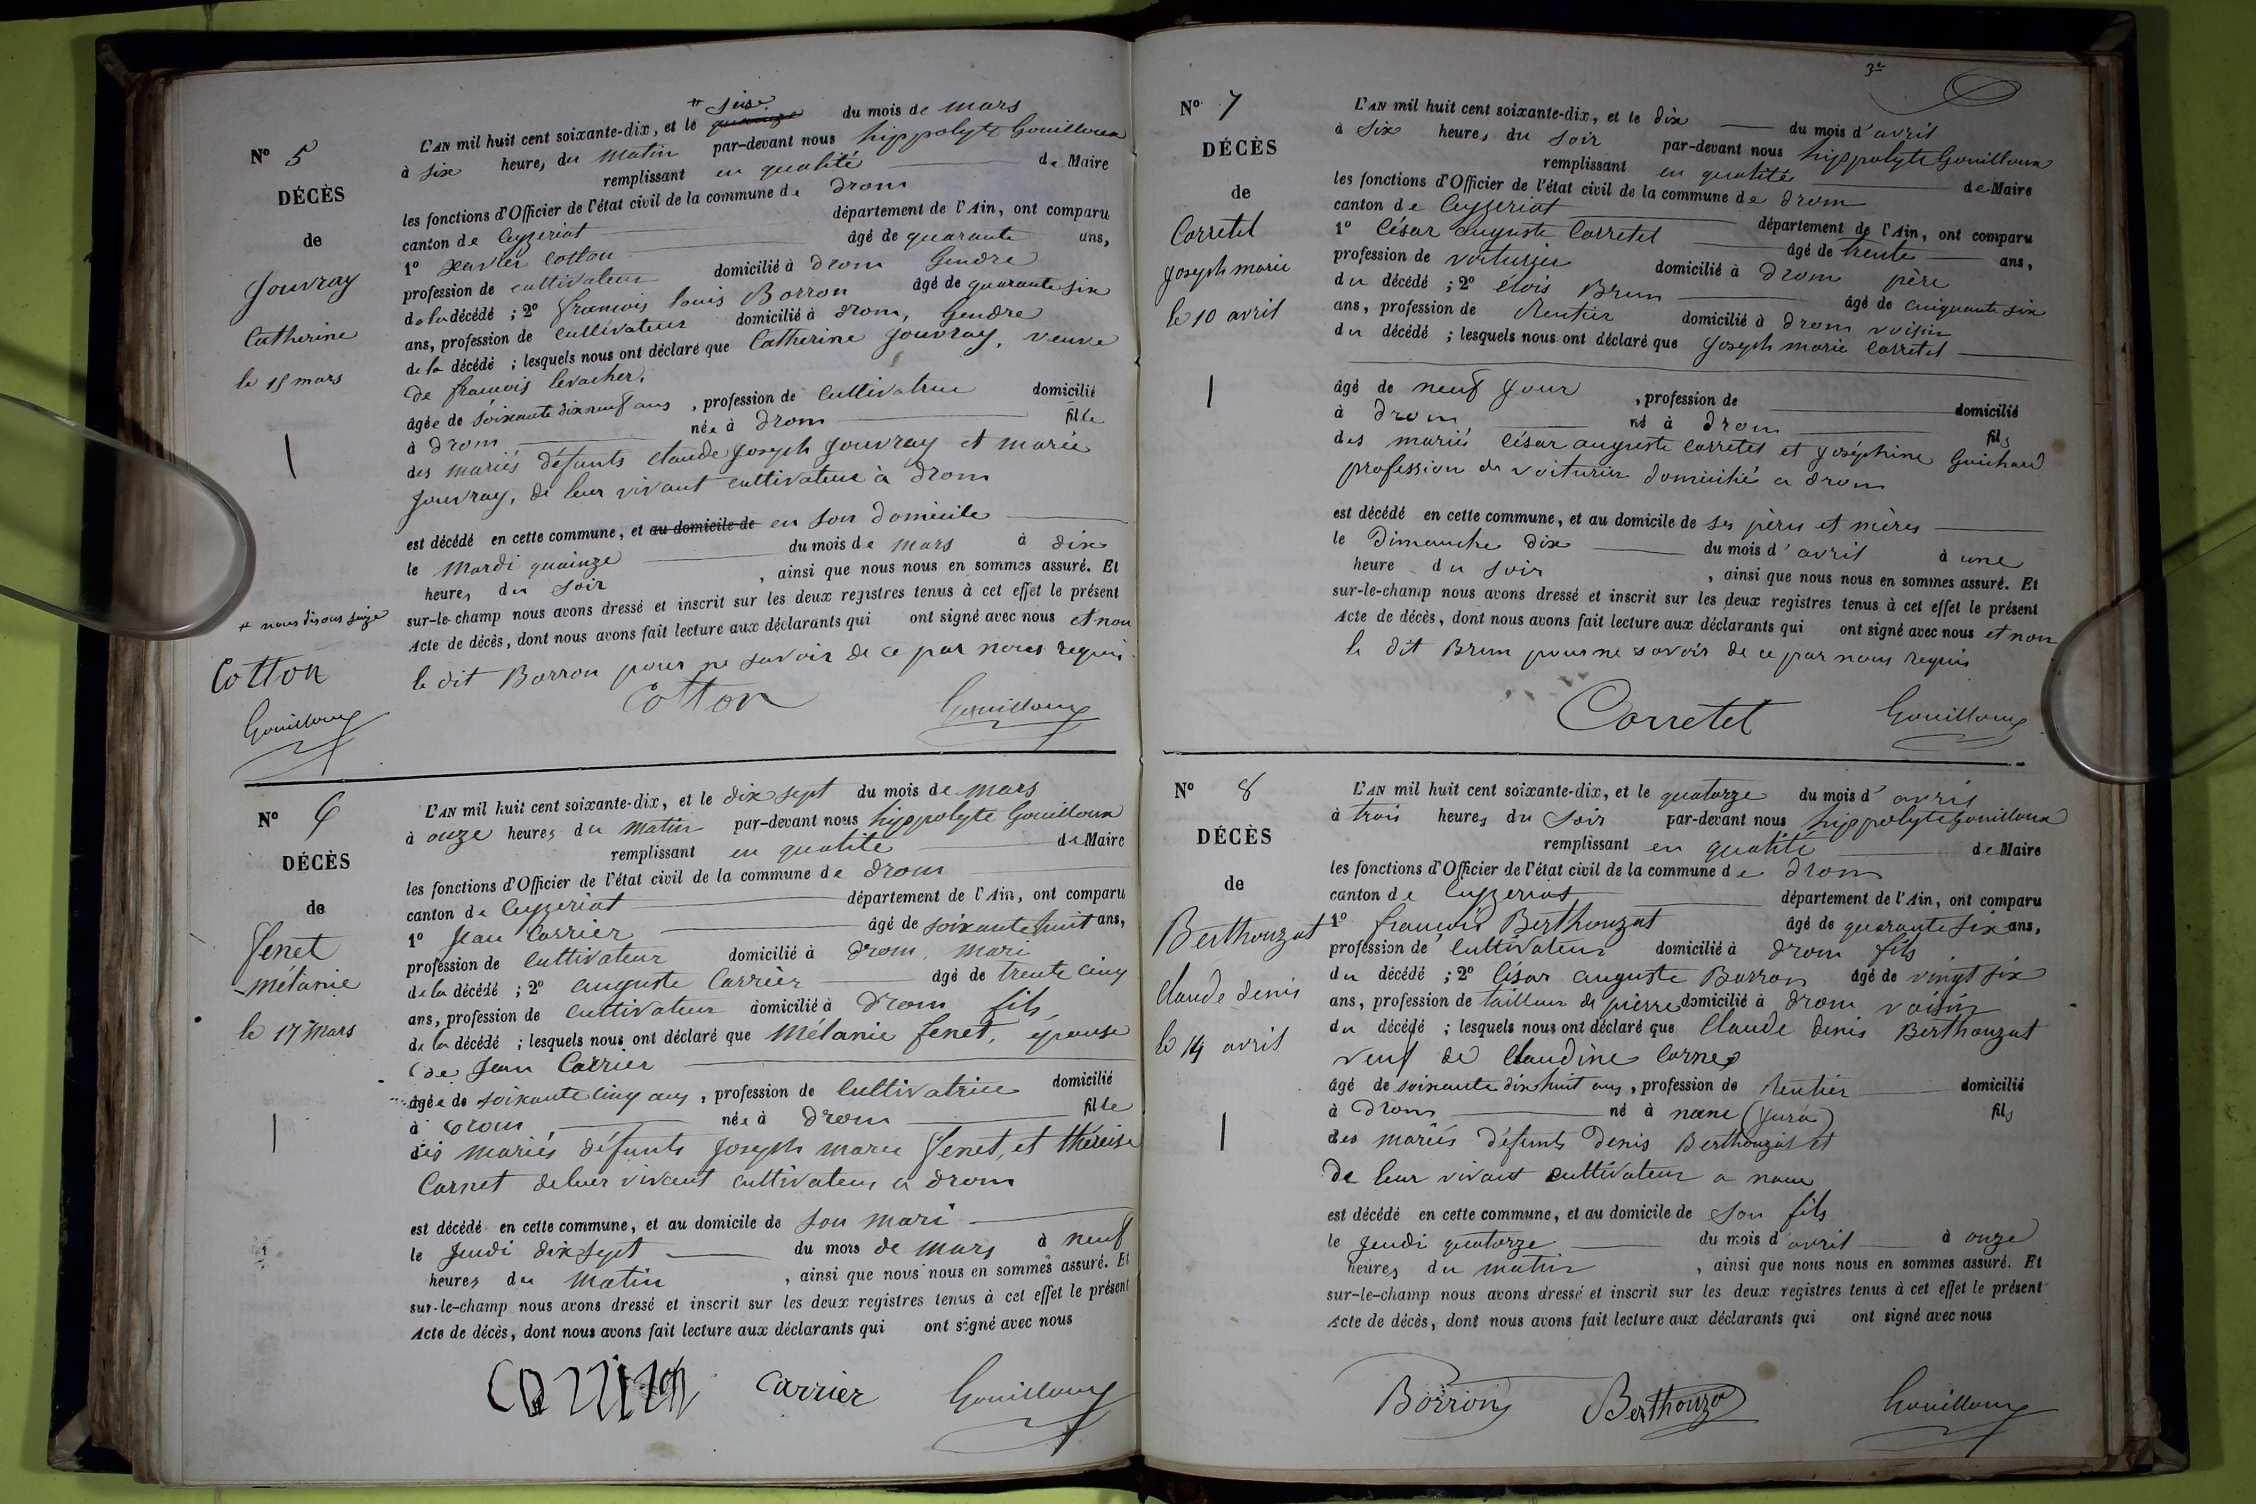 N° 5
DÉCÈS
de
Jouvray
Catherine
le 15 mars
+ nous disons seize
Cotton
Gouilloux
+ seize
L'AN mil huit cent soixante-dix, et le quinze du mois de mars
à six heures du matin par-devant nous hippolyte Gouilloux
remplissant en qualité de Maire
les fonctions d'Officier de l'état civil de la commune de drom
canton de Ceyzeriat département de l'Ain, ont comparu
1° xavier Cotton âgé de quarante ans,
profession de cultivateur domicilié à drom Gendre
de la décédé ; 2° francois louis Borron âgé de quarante six
ans, profession de cultivateur domicilié à drom, Gendre
de la décédé ; lesquels nous ont déclaré que Catherine Jouvray, veuve
de francois levacher,
âgée de soixante dix neuf ans, profession de cultivatrice domicilié
à drom née à drom fille
des mariés défunts claude Joseph Jouvray et marie
Jouvray, de leur vivant cultivateur à drom
est décédé en cette commune, et au domicile de en son domicile
le mardi quinze du mois de mars à dix
heures du soir, ainsi que nous nous en sommes assuré. Et
sur-le-champ nous avons dressé et inscrit sur les deux registres tenus à cet effet le présent
Acte de décès, dont nous avons fait lecture aux déclarants qui ont signé avec nous et non
le dit Borron pour ne savoir de ce par nous requis
Cotton Gouilloux
N° 6
DÉCÈS
de
fenet
mélanie
le 17 mars
L'AN mil huit cent soixante-dix, et le dix sept du mois de mars
à onze heures du matin par-devant nous hippolyte Gouilloux
remplissant en qualité de Maire
les fonctions d'Officier de l'état civil de la commune de drom
canton de Ceyzeriat département de l'Ain, ont comparu
1° Jean Carrier âgé de soixante huit ans,
profession de cultivateur domicilié à drom, mari
de la décédé ; 2° auguste Carrier âgé de trente cinq
ans, profession de cultivateur domicilié à drom fils
de la décédé ; lesquels nous ont déclaré que Mélanie fenet, épouse
de Jean Carrier
âgée de soixante cinq ans, profession de cultivatrice domicilié
à drom, née à drom fille
des mariés défunts Joseph marie fenet, et thérèise
Carnet de leur vivant cultivateur a drom
est décédé en cette commune, et au domicile de son mari
le Jeudi dix sept du mois de mars à neuf
heures du matin, ainsi que nous nous en sommes assuré. Et
sur-le-champ nous avons dressé et inscrit sur les deux registres tenus à cet effet le présent
Acte de décès, dont nous avons fait lecture aux déclarants qui ont signé avec nous
Carrier Gouilloux
3e
N° 7
DÉCÈS
de
Corretel
Joseph marie
le 10 avril
L'AN mil huit cent soixante-dix, et le dix du mois d'avril
à six heures du soir par-devant nous hippolyte Gouilloux
remplissant en qualité de Maire
les fonctions d'Officier de l'état civil de la commune de drom
canton de Ceyzeriat département de l'Ain, ont comparu
1° César auguste Corretel âgé de trente ans,
profession de voiturier domicilié à drom père
du décédé ; 2° élois Brun âgé de cinquante six
ans, profession de Rentier domicilié à drom voisin
du décédé ; lesquels nous ont déclaré que Joseph marie Corretel
âgé de neuf Jour, profession de domicilié
à drom né à drom fils
des mariés César auguste Corretel et Joséphine Guichard
profession de voiturier domicilié a drom
est décédé en cette commune, et au domicile de ses pères et mères
le Dimanche dix du mois d'avril à une
heure du soir, ainsi que nous nous en sommes assuré. Et
sur-le-champ nous avons dressé et inscrit sur les deux registres tenus à cet effet le présent
Acte de décès, dont nous avons fait lecture aux déclarants qui ont signé avec nous et non
le dit Brun pour ne savoir de ce par nous requis
Corretel Gouilloux
N° 8
DÉCÈS
de
Berthouzat
claude denis
le 14 avril
L'AN mil huit cent soixante-dix, et le quatorze du mois d'avril
à trois heures du soir par-devant nous hippolyte Gouilloux
remplissant en qualité de Maire
les fonctions d'Officier de l'état civil de la commune de drom
canton de Ceyzeriat département de l'Ain, ont comparu
1° francois Berthouzat âgé de quarante six ans,
profession de cultivateur domicilié à drom fils
du décédé ; 2° César auguste Borron âgé de vingt six
ans, profession de tailleur de pierre domicilié à drom voisin
du décédé ; lesquels nous ont déclaré que Claude denis Berthouzat
veuf de Claudine
âgé de soixante dix huit ans, profession de Rentier domicilié
à drom né à nanc (Jura) fils
des mariés défunts Denis Berthouzat et
de leur vivant cultivateur a nanc
est décédé en cette commune, et au domicile de son fils
le Jeudi quatorze du mois d'avril à onze
heures du matin, ainsi que nous nous en sommes assuré. Et
sur-le-champ nous avons dressé et inscrit sur les deux registres tenus à cet effet le présent
Acte de décès, dont nous avons fait lecture aux déclarants qui ont signé avec nous
Borron Berthouza Gouilloux